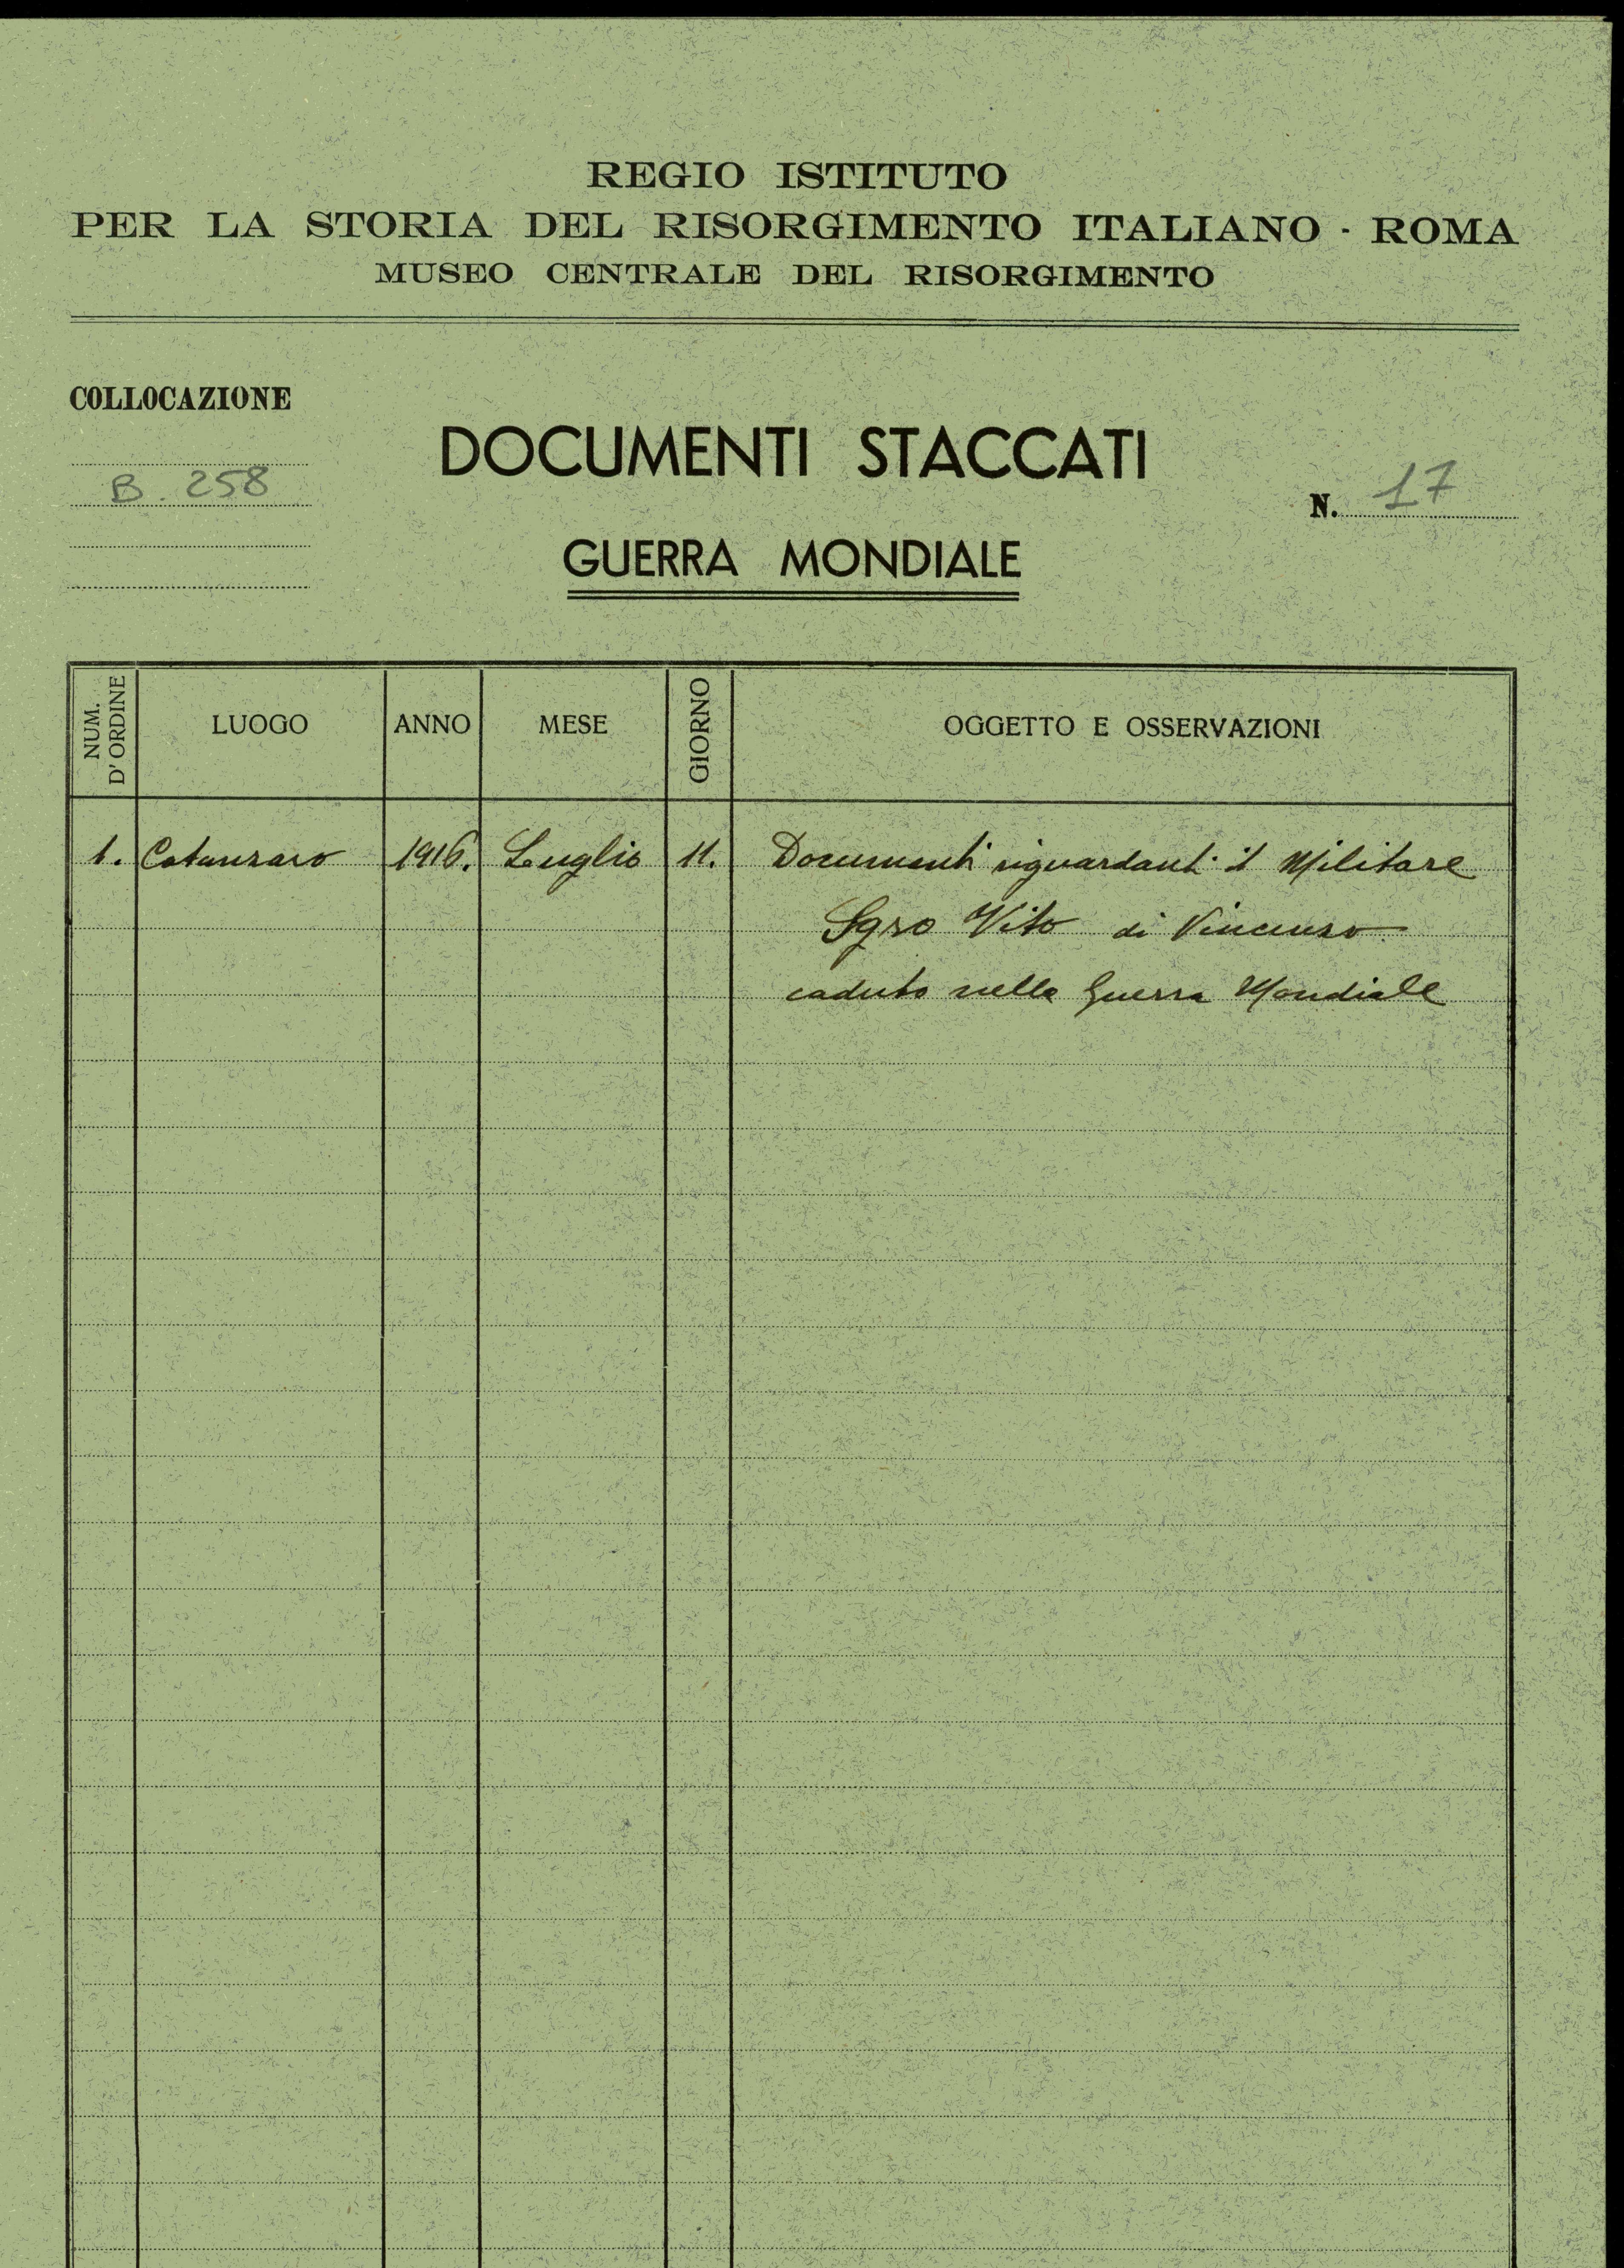 REGIO ISTITUTO
PER LA STORIA DEL RISORGIMENTO ITALIANO - ROMA
MUSEO CENTRALE DEL RISORGIMENTO
COLLOCAZIONE
B. 258
DOCUMENTI STACCATI
N. 17
GUERRA MONDIALE
NUM. D'ORDINE LUOGO ANNO MESE GIORNO OGGETTO E OSSERVAZIONI
1. Catanzaro 1916. Luglio 11. Documenti riguardanti il Militare
Sgro Vito di Vincenzo
caduto nella Guerra Mondiale